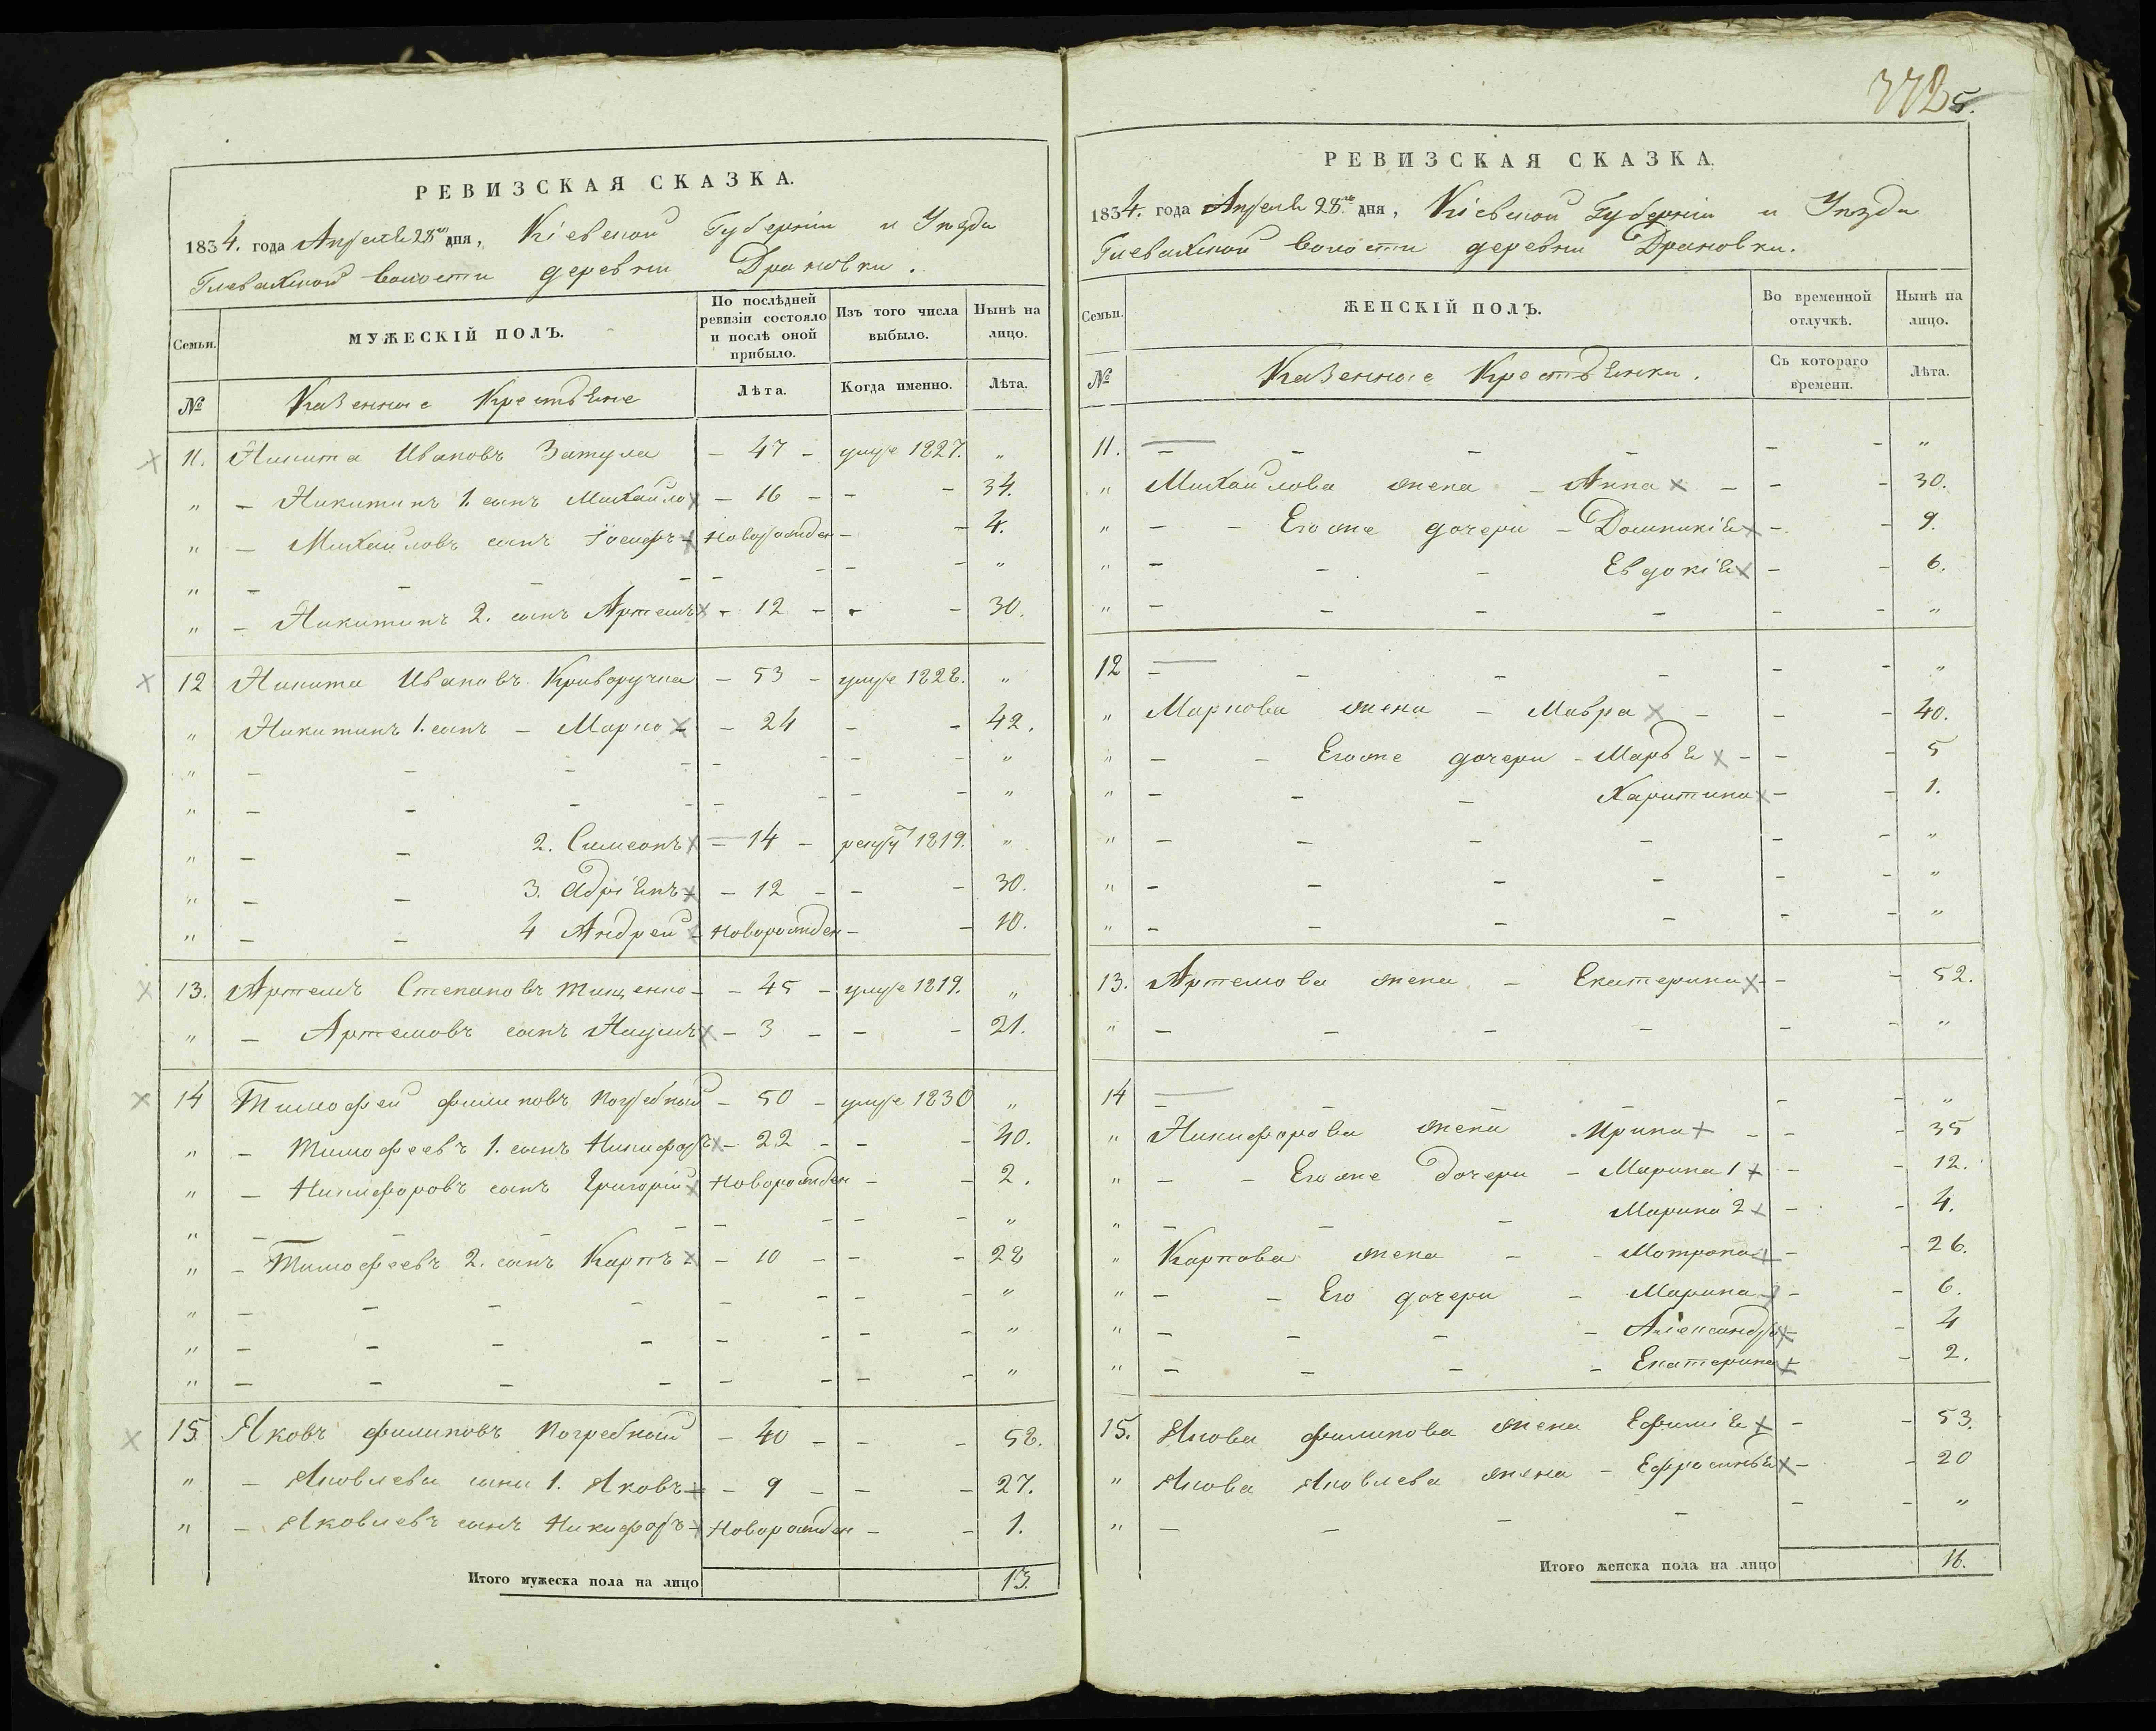 РЕВИЗСКАЯ СКАЗКА.
1834. года Апреля 28го дня, Кіевской Губерніи и Уезда
Глевахской волости деревни Драновки.
Семьи.
МУЖЕСКІЙ ПОЛЪ.
По послѣдней ревизіи состояло и послѣ оной прибыло.
Изъ того числа выбыло.
Нынѣ на лицо.
№
Казенные Крестьяне
Лѣта.
Когда именно.
Лѣта.
11. Никита Ивановъ Затула - 47 - умре 1827. "
" - Никитинъ 1. сынъ Михайло - 16 - - - 34.
" - Михайловъ сынъ Іосифъ - Новорожден - - 4.
" - - - - - - - - "
" - Никитинъ 2. сынъ Артемъ - 12 - - - 30.
12 Никита Ивановъ Криворучка - 53 - умре 1828. "
" Никитинъ 1. сынъ - Марко - - 24 - - 42.
" - - - - - - - - "
" - - - - - - - - "
" - - 2. Симеонъ - 14 - рекру 1819. "
" - - 3. Адріянъ - 12 - - - 30.
" - - 4 Андрей - Новорожден - - 10.
13. Артемъ Степановъ Тищенко - - 45 - умре 1819. "
" - Артемовъ сынъ Наумъ - 3 - - - 21.
14 Тимофей Филиповъ Погребный - 50 - умре 1830 "
" - Тимофеевъ 1. сынъ Никифоръ - 22 - - - 40.
" - Никифоровъ сынъ Григорій Новорожден - - 2.
" - - - - - - - - "
" - Тимофеевъ 2. сынъ Карпъ - - 10 - - - 28
" - - - - - - - - "
" - - - - - - - - "
" - - - - - - - - "
15. Яковъ Филиповъ Погребный - 40 - - - 58.
" - Яковлева сына 1. Яковъ - - 9 - - - 27.
" - Яковлевъ сынъ Никифоръ - Новорожден - - 1.
Итого мужеска пола на лицо 13.
5.
РЕВИЗСКАЯ СКАЗКА.
1834. года Апреля 28го дня, Кіевской Губерніи и Уезда
Глевахской волости деревни Драновки.
Семьи.
ЖЕНСКІЙ ПОЛЪ.
Во временной отлучкѣ.
Нынѣ на лицо.
№
Казенные Крестьянки.
Съ котораго времени.
Лѣта.
11. - - - - - - "
" Михайлова жена - Анна - - - 30.
" - - Егоже дочери - Домникія - - 9.
" - - - Евдокія - - 6.
" - - - - - - "
12 - - - - - - "
" Маркова жена - Мавра - - - 40.
" - - Егоже дочери - Марья - - - 5
" - - - Харитина - - 1.
" - - - - - - "
" - - - - - - "
" - - - - - - "
13. Артемова жена - Екатерина - - 52.
" - - - - - - "
14 - - - - - - "
" Никифорова жена - Ирина - - - 35
" - - Егоже дочери - Марина 1 - - 12.
" - - - Марина 2 - - 4.
" Карпова жена - - Мотрона - - 26.
" - - Его дочери - Марина - - 6.
" - - - - Александра - - 4
" - - - - Екатерина - - 2.
15. Якова Филипова жена Ефимія - - 53.
" Якова Яковлева жена - Ефросинья - - 20
" - - - - - - "
Итого женска пола на лицо 16.